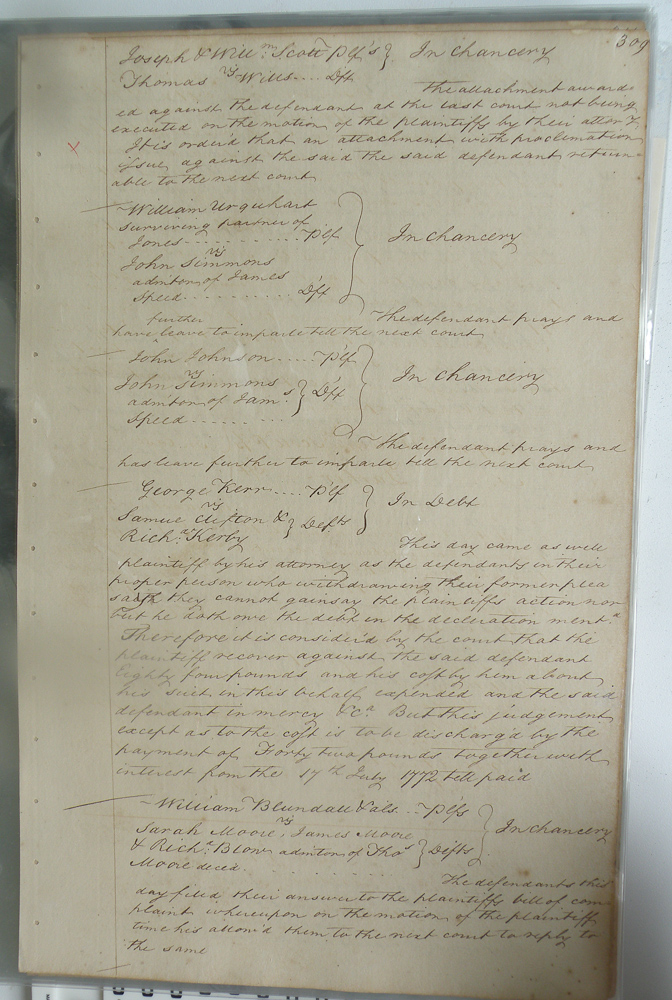 309
Joseph & Will.m Scott Plf's } In chancery
vs
Thomas Wills.... Dft
The attachment award-
ed against the defendant at the last court not being
executed on the motion of the plaintiffs by their attor.y
It is order'd that an attachment with proclamation
issue against the said the said defendant return-
able to the next court
William Urquhart
surviving partner of
Jones.......... Plf
vs
John Simmons
admitor of James
Speed.......... Dft
In chancery
The defendant prays and
further
have leave to imparle till the next court
John Johnson..... Plf
vs
John Simmons
admitor of Jam.s } Dft
Speed.......
In chancery
The defendant prays and
has leave further to imparle till the next court
George Kerr.... Plf
vs
Samue Clifton & } Defts
Rich.d Kerby
In Debt
This day came as well
plaintiff by his attorney as the defendants in their
proper person who withdrawing their former plea
saith they cannot gainsay the plaintiffs action nor
but he doth owe the debt in the decleration ment.d
Therefore it is consider'd by the court that the
plaintiff recover against the said defendant
Eighty four pounds, and his cost by him about
his suit in this behalf expended and the said
defendant in mercy &c.a But this judgement
except as to the cost is to be discharg'd by the
payment of Forty two pounds together with
interest from the 17th July 1772 till paid
William Blundall & als.. Plfs
vs
Sarah Moore, James Moore
& Rich.d Blow admitor of Tho.s } Defts
Moore dece'd
In chancery
The defendants this
day filed their answer to the plaintiffs bill of com
plaint whereupon on the motion of the plaintiffs
time his allow'd them to the next court to reply to
the same